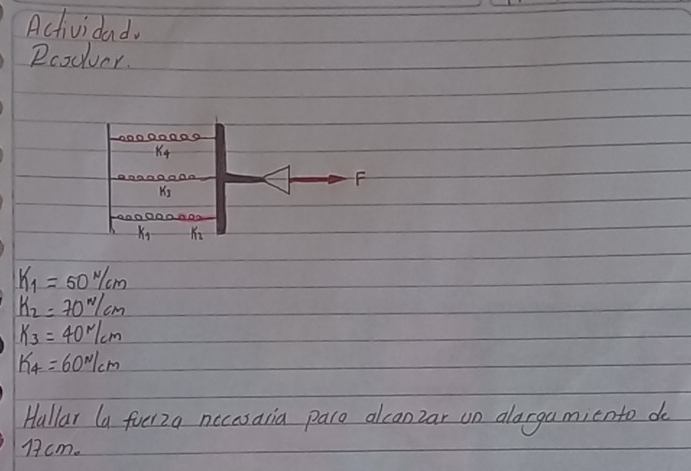 Actividad.
Resolver.
K4
K3
F
K1 K2
K1 = 50 N/cm
K2 = 70 N/cm
K3 = 40 N/cm
K4 = 60 N/cm
Hallar la fuerza necesaria para alcanzar un alargamiento de
17cm.